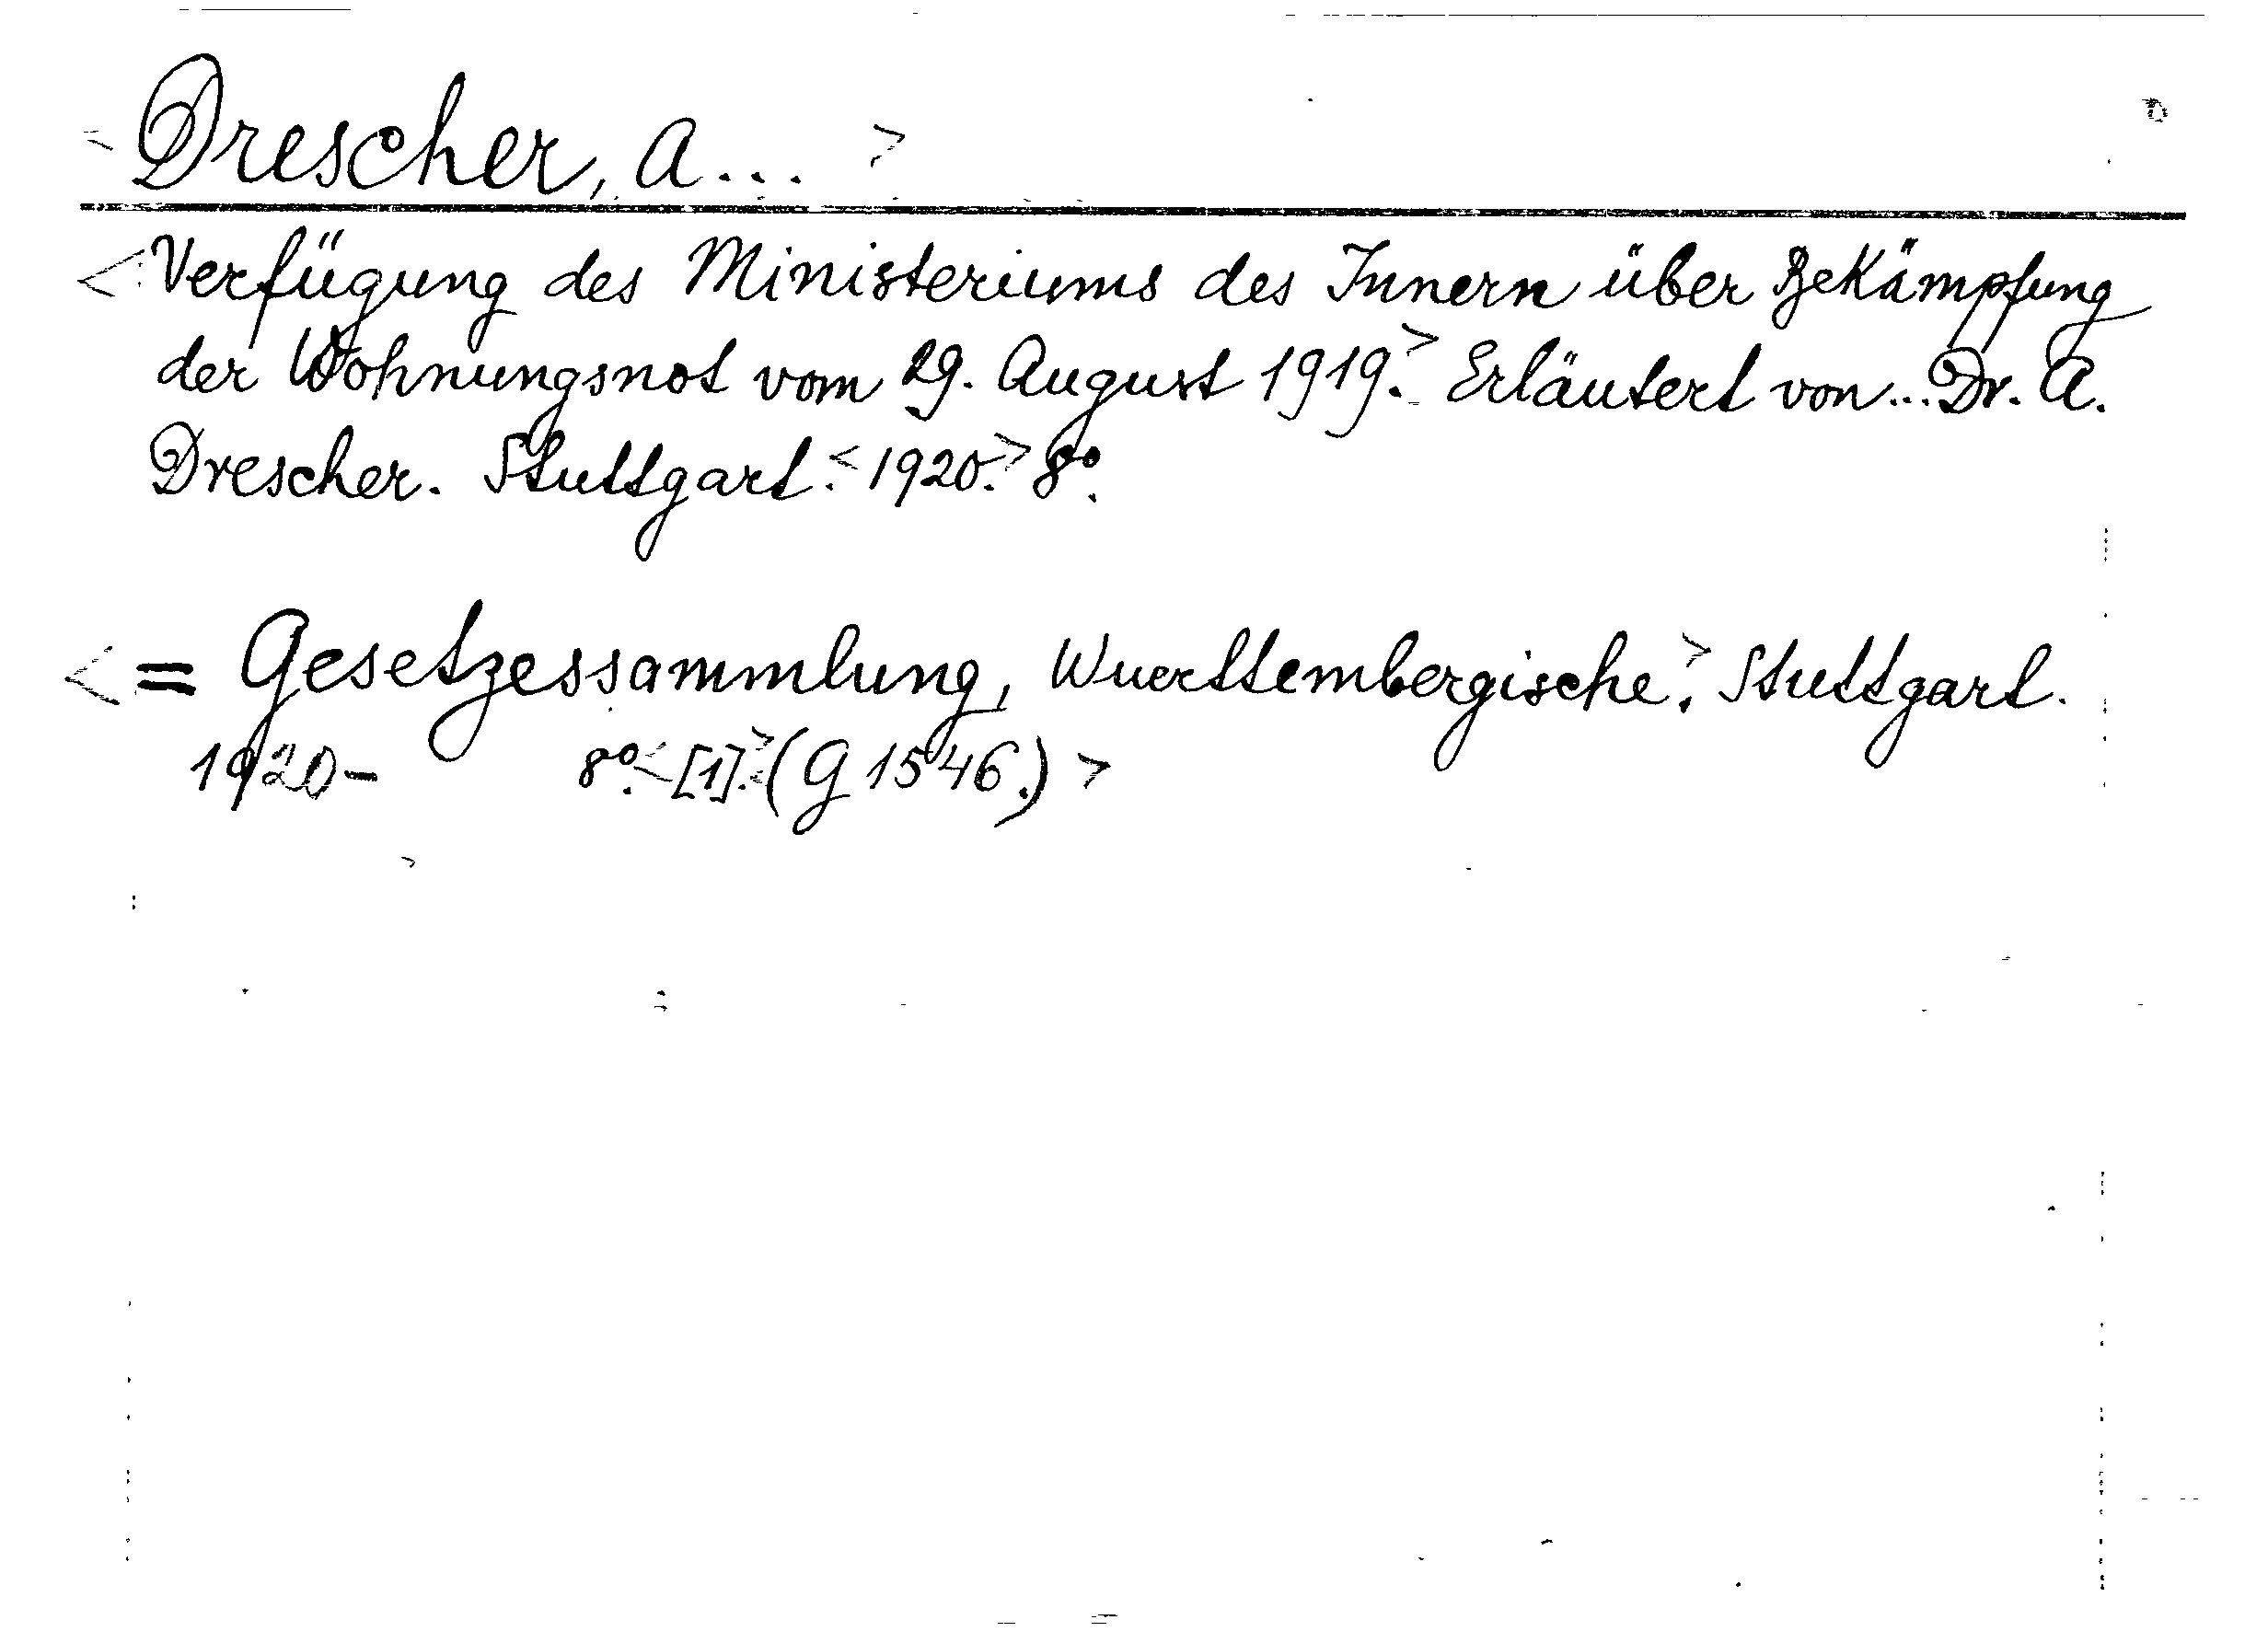 <Drescher, A... >
<Verfügung des Ministeriums des Innern über Bekämpfung
der Wohnungsnot vom 29. August 1919.> Erläutert von... Dr. A.
Drescher. Stuttgart.<1920.> 8°.
<= Gesetzessammlung, Wuerttembergische.> Stuttgart.
1920- 8°.<[1].><(G 1546.)>